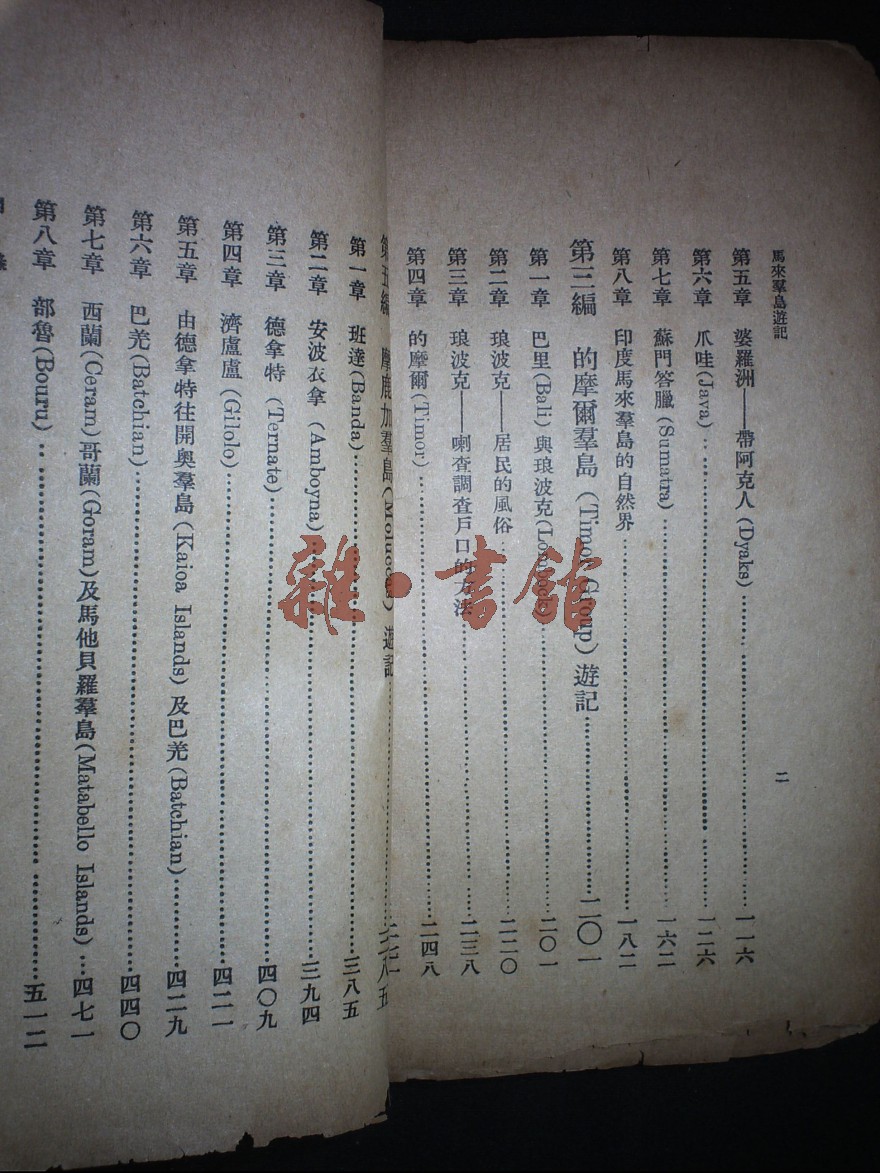 馬來羣島遊記
二
第五章 婆羅洲——帶阿克人(Dyaks)……一一六
第六章 爪哇(Java)……一二六
第七章 蘇門答臘(Sumatra)……一六二
第八章 印度馬來羣島的自然界……一八二
第三編 的摩爾羣島(Timor Group)遊記……二〇一
第一章 巴里(Bali)與琅波克(Lombock)……二〇一
第二章 琅波克——居民的風俗……二二〇
第三章 琅波克——喇查調查戶口的方法……二三八
第四章 的摩爾(Timor)……二四八
第五編 摩鹿加羣島(Moluccas)遊記……三八五
第一章 班達(Banda)……三八五
第二章 安波衣拿(Amboyna)……三九四
第三章 德拿特(Ternate)……四〇九
第四章 濟盧盧(Gilolo)……四二一
第五章 由德拿特往開奧羣島(Kaioa Islands)及巴羌(Batchian)……四二九
第六章 巴羌(Batchian)……四四〇
第七章 西蘭(Ceram)哥蘭(Goram)及馬他貝羅羣島(Matabello Islands)…四七一
第八章 部魯(Bouru)……五一二
雜·書館